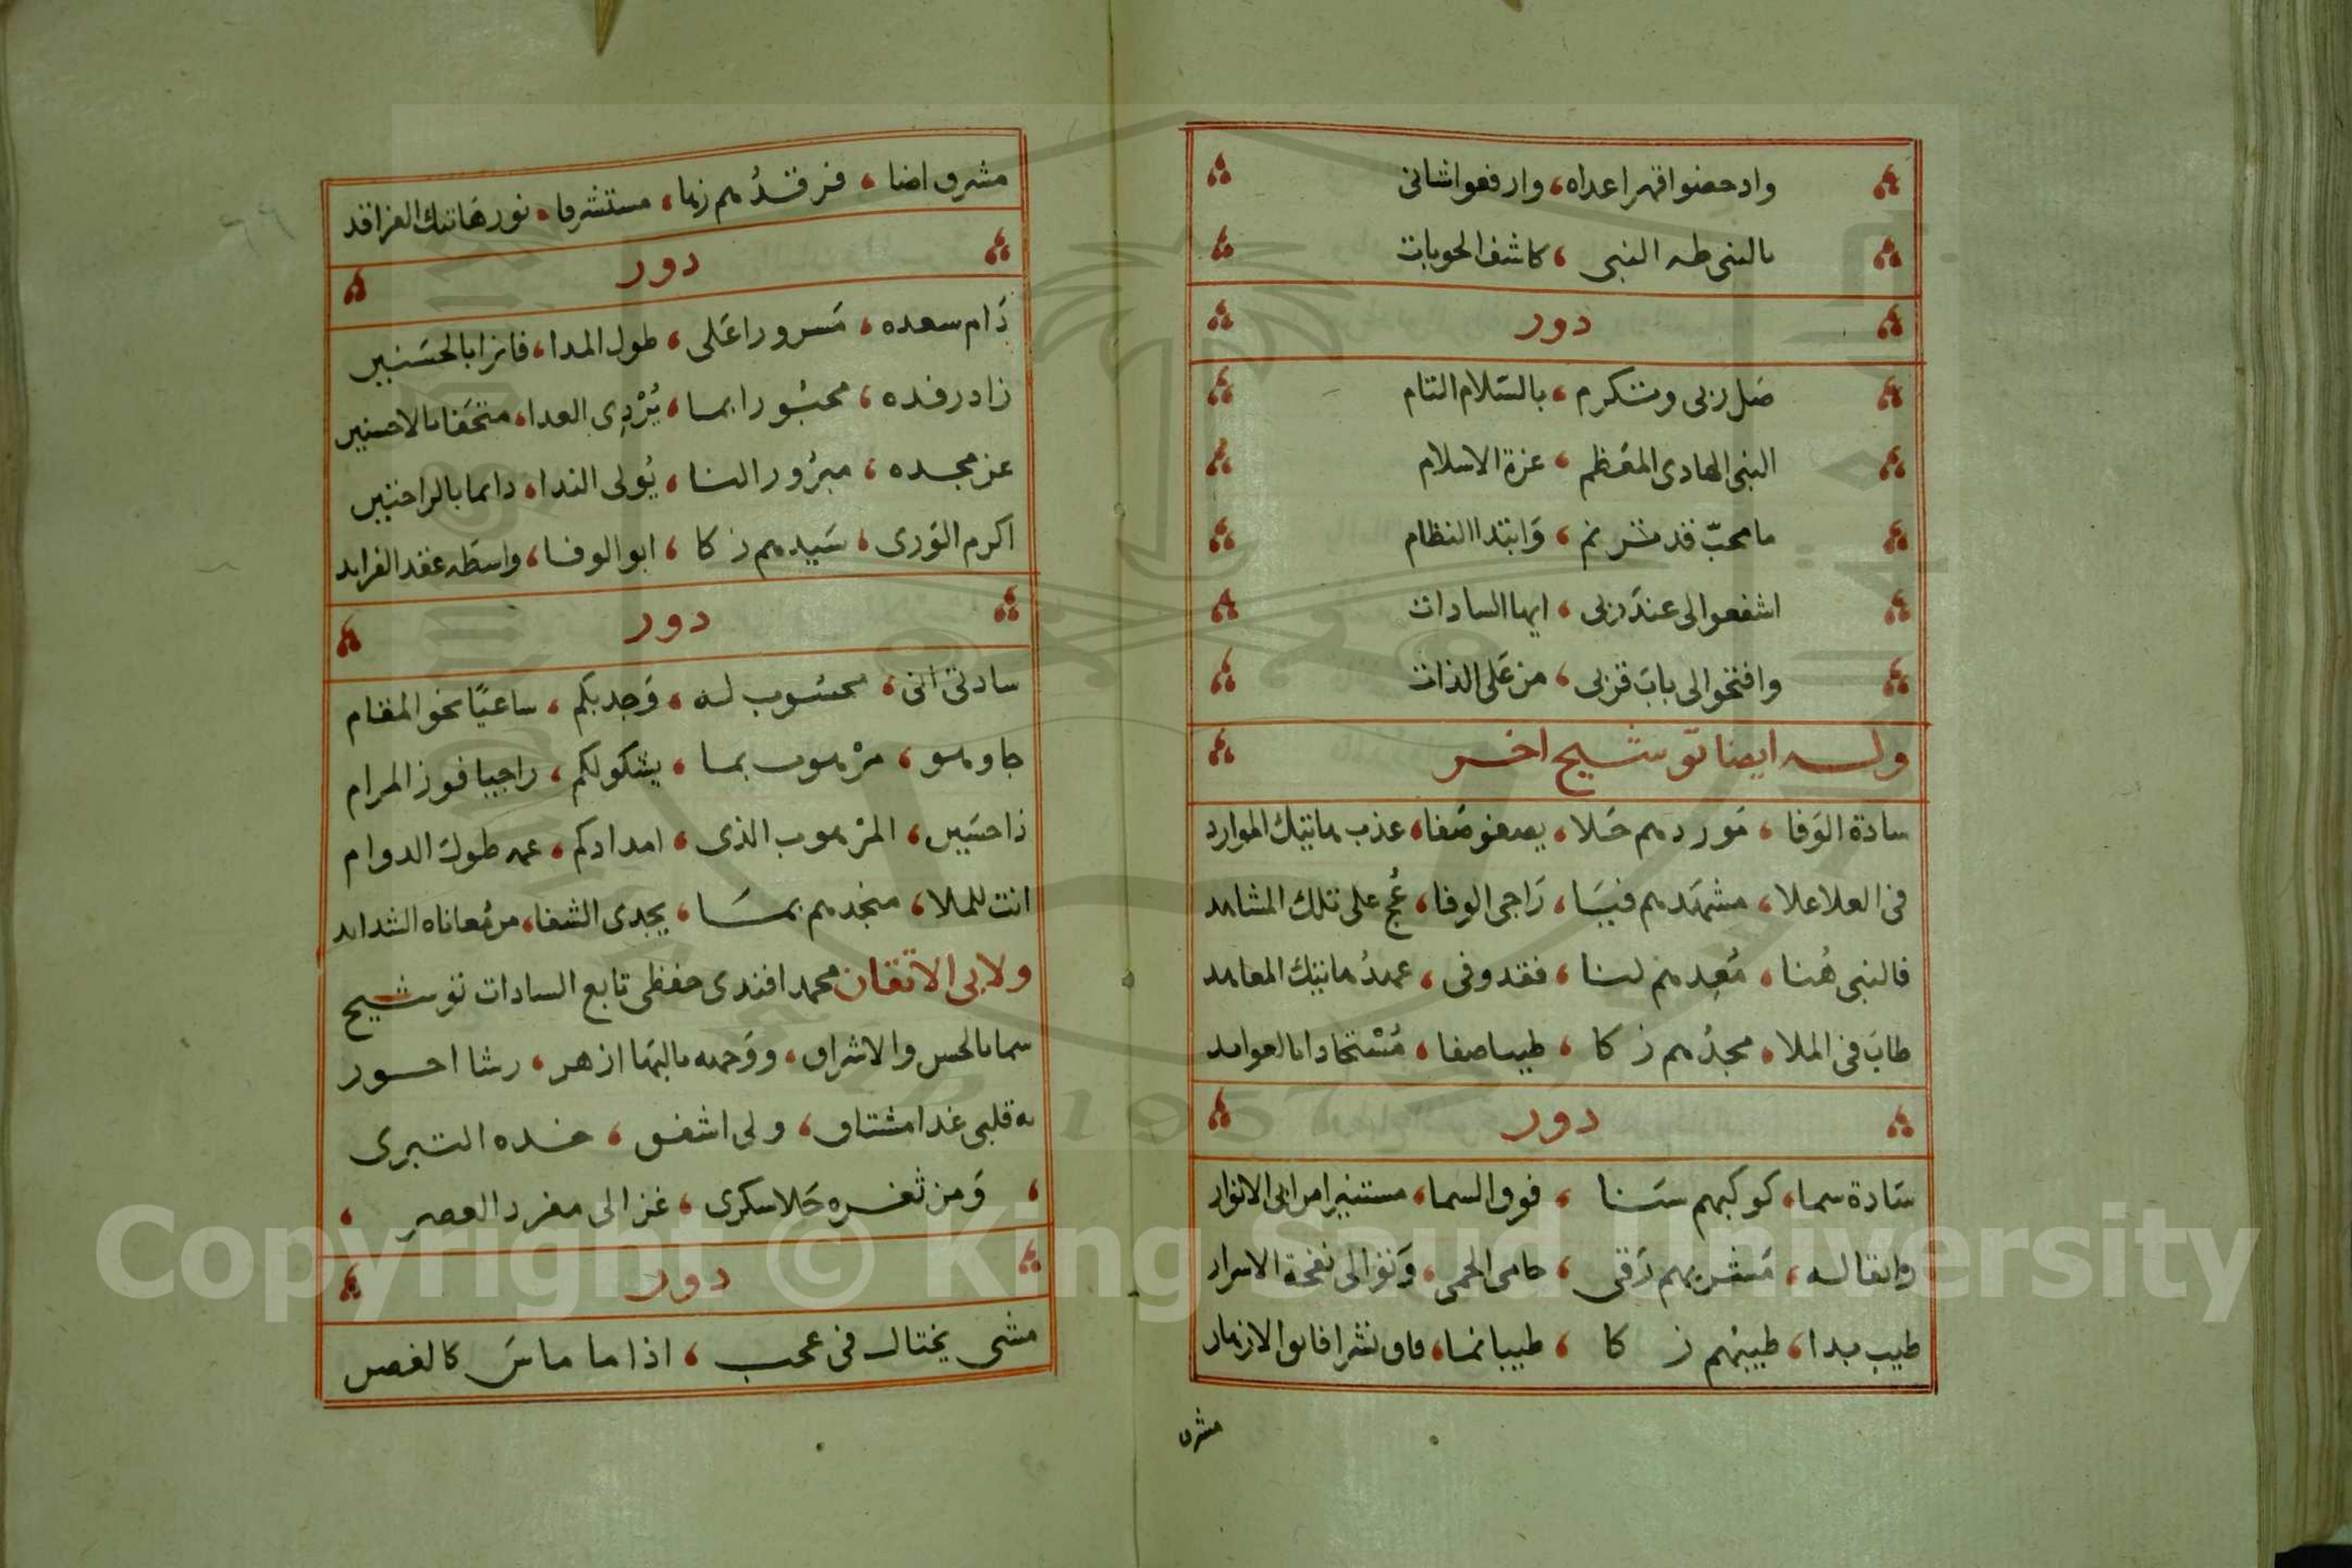 وادحضوا قهر اعداه، وارفعوا شانى
بالنبى طه النبى، كاشف الحوبات
دور
صَل ربى وتكرم، بالسّلام التام
النبى الهادى المعَظم، عزة الاسلام
ما محبّ قد ترنم، وَابتدا النظام
اشفعوا لى عندَ ربى، ايها السادات
وافتحوا لى بابَ قربى، من عَلى الذات
وله ايضا توشيح اخر
سادة الوَفا، مَوردهم حَلا، يصفو صَفا، عذب هاتيك الموارد
فى العلا علا، مشهَدهم فيَا، رَاجى الوفا، عُج على تلك المشاهد
فالنبى هُنا، مُعِدهم لنا، فقد وفى، عهدُ هاتيك المعاهد
طابَ فى الملا، مجدُهم زكا، طيبا صفا، مُسْتجادا بالعوايد
دور
سَادة سما، كوكبهم سَنا، فوق السما، مستنيرا من ابى الانوار
وانقا له، مَشربهم رَقى، حامى الحمى، وَنوالى نفحة الاسرار
طيب بدا، طيبهم زكا، طيبا نما، فاق نشرا فايق الازهار
مشرق
مشرق اضا، فرقدُهم زها، مستشرفا، نور هَاتيك الفراقد
دور
دَام سعده، مَسرورا عَلى، طول المدا، فائزا بالحسَنيين
زاد رفده، محبُورا بما، يُرْدِى العدا، متحَفا بالاحسنين
عز مجده، مبرُور الثنا، يُولى الندا، دايما بالراحتين
اكرم الوَرى، سَيدهم زكا، ابو الوفا، واسطه عقد الفرايد
دور
سادتى انى، محسُوب له، وَجد بكم، ساعيًا نحو المقام
جا وهو، مرْهوب بما، يشكو لكم، راجيا فوز المرام
ذا حسَين، المرْهوب الذى، امدادكم، عمه طول الدوام
انت للملا، منجدهم بمَا، يجدى الشفا، من مُعاناه الشدايد
ولابى الاتقان محمد افندى حفظى تابع السادات توشيح
سما بالحسن والاشراق، ووَجهه بالبَها ازهر، رشا احور
به قلبى غدا مشتاق، ولى اشفق، خده التبرى
وَمن ثغره حَلا سكرى، غزالى مفرد العصر
دور
مشى يختال فى عجب، اذا ما ماسَ كالغصن